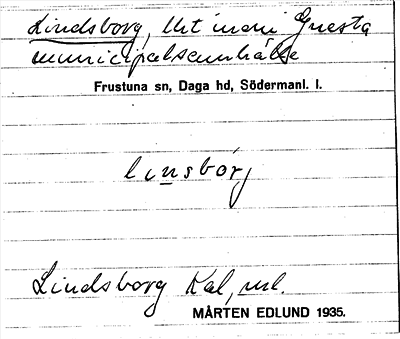 Lindsborg, lht inom Gnesta
municipalsamhälle
Frustuna sn, Daga hd, Södermanl. l.
linsbórj
Lindsborg Kal,
MÅRTEN EDLUND 1935.